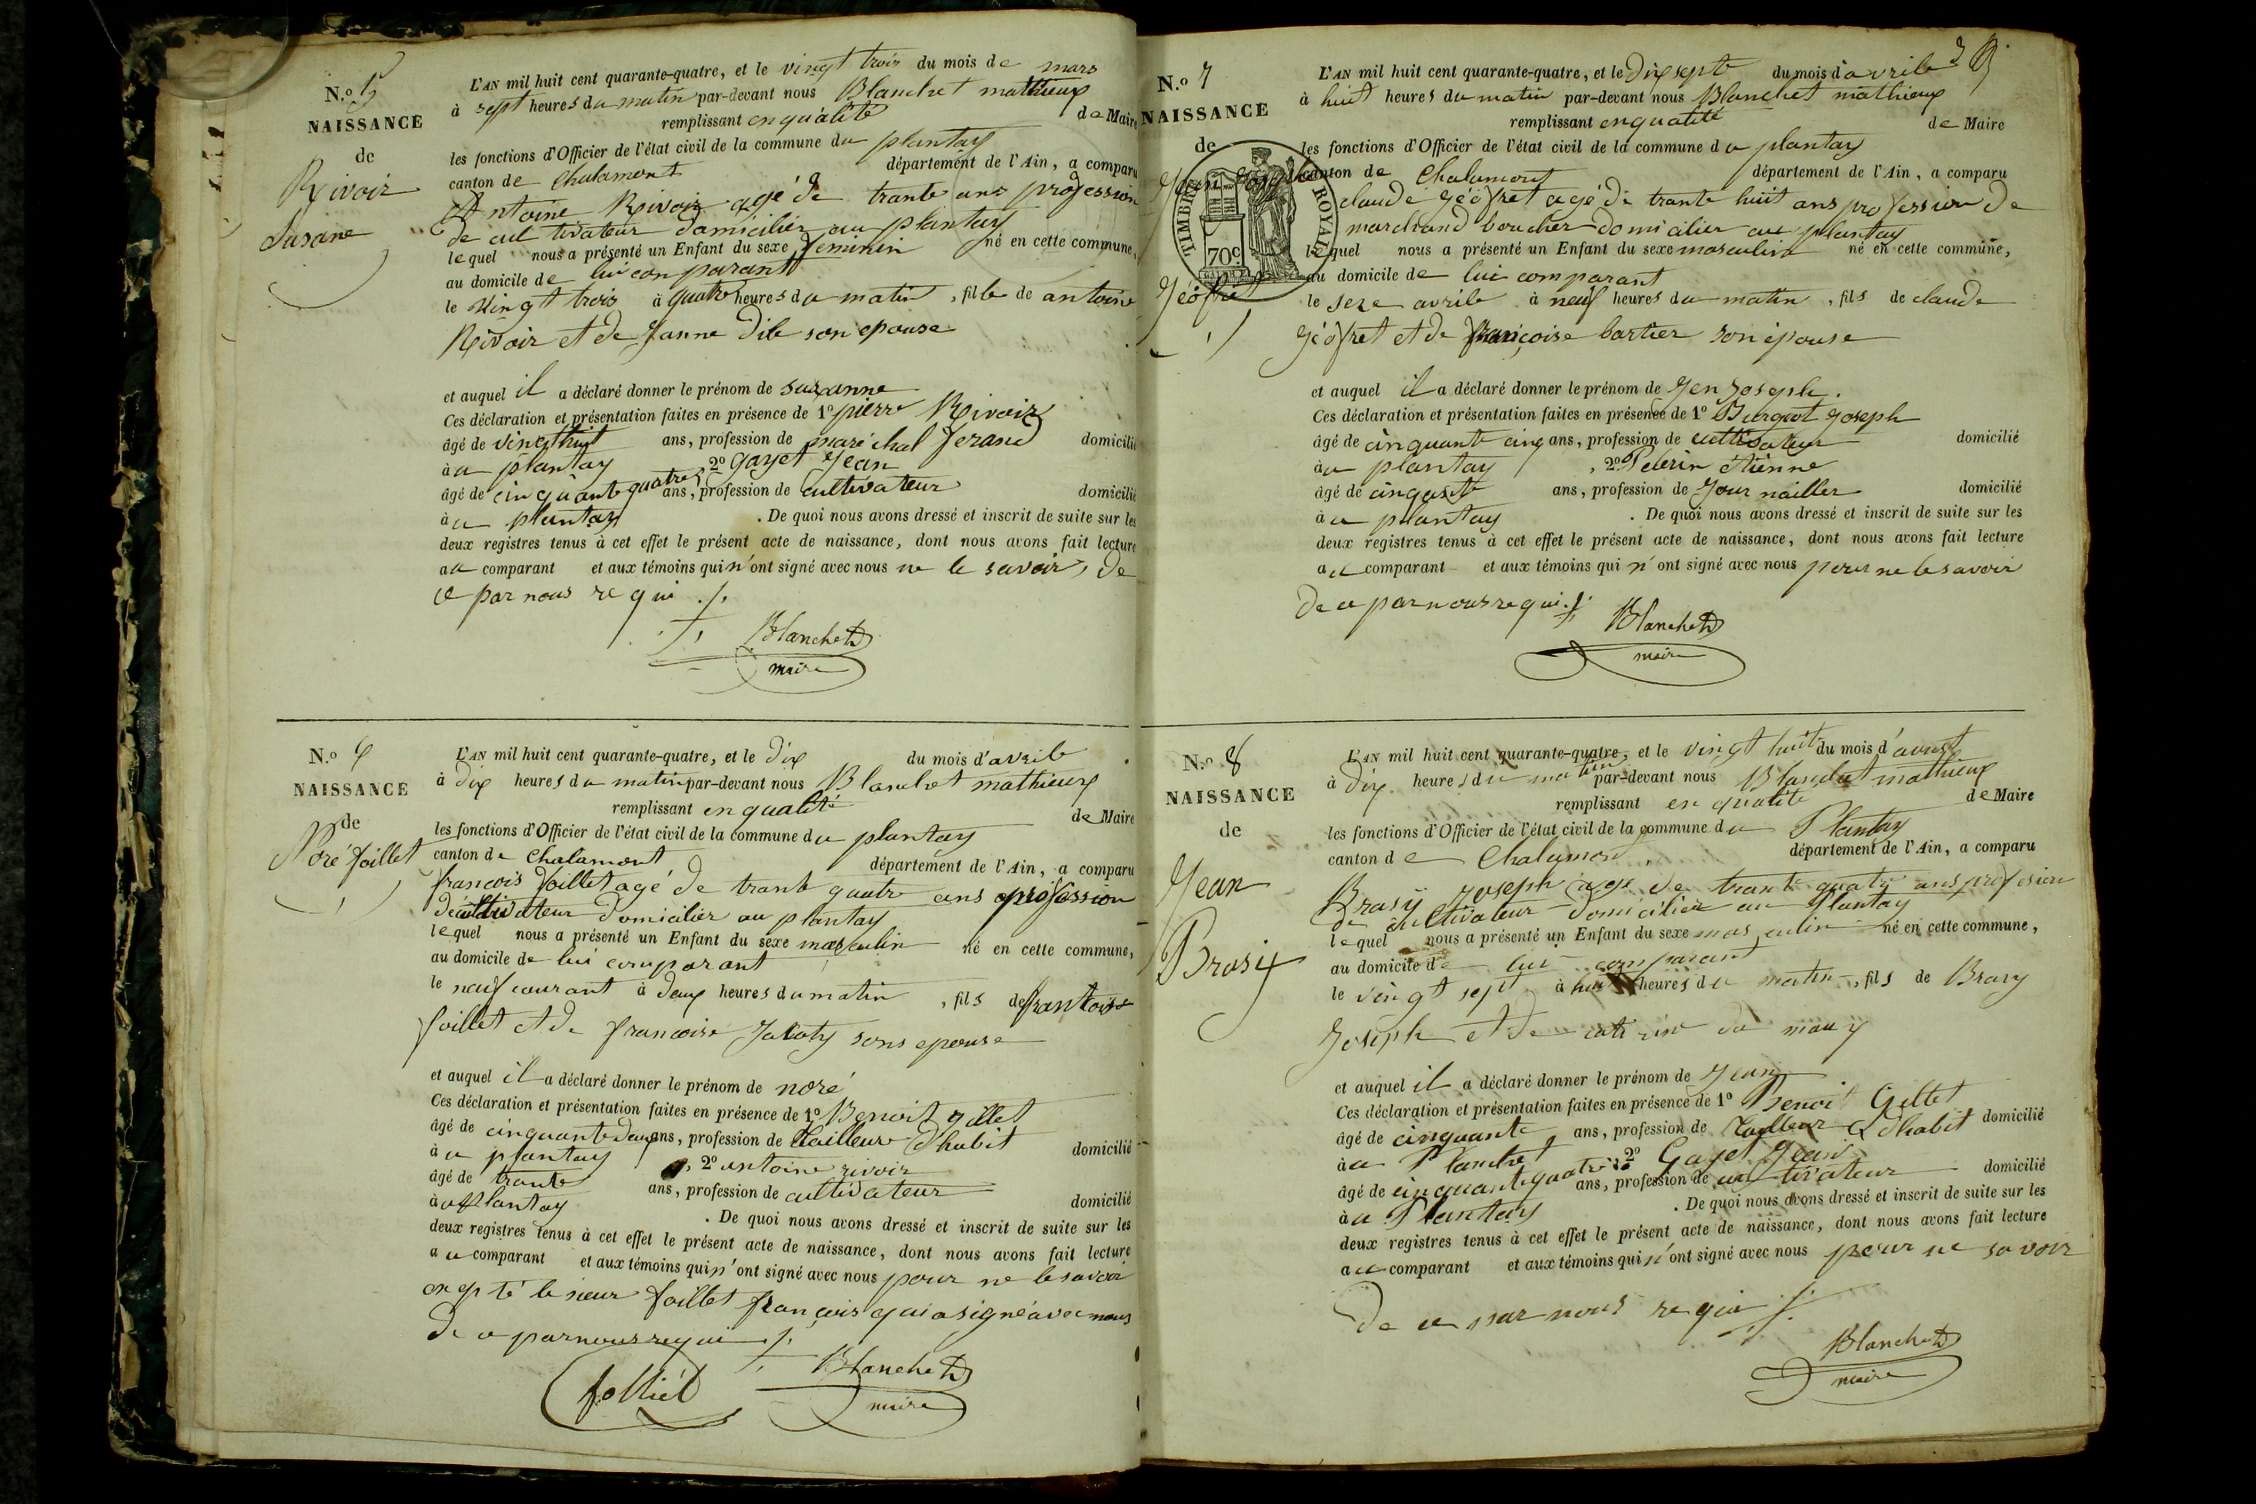 N.o 5
NAISSANCE
de
Rivoir
Susane
L'AN mil huit cent quarante-quatre, et le vingt trois du mois de mars
à sept heures du matin par-devant nous Blanchet mathieux
remplissant en qualité de Maire
les fonctions d'Officier de l'état civil de la commune du plantay
canton de Chalamont département de l'Ain, a comparu
Antoine Rivoir agé de trante ans profession
de cultivateur domicilier au plantay
lequel nous a présenté un Enfant du sexe feminin né en cette commune,
au domicile de lui comparant
le vingt trois à quatre heures du matin, fille de antoine
Rivoir et de Janne Dile son epouse
et auquel il a déclaré donner le prénom de suzanne
Ces déclaration et présentation faites en présence de 1o pierre Rivoir
âgé de vingthuit ans, profession de maréchal ferand domicilié
à u plantay, 2o Gayet Jean
âgé de cinquante quatre ans, profession de cultivateur domicilié
à u plantay. De quoi nous avons dressé et inscrit de suite sur les
deux registres tenus à cet effet le présent acte de naissance, dont nous avons fait lecture
au comparant et aux témoins qui n'ont signé avec nous ne le savoir, de
ce par nous requi ./.
Blanchet
maire
N.o 6
NAISSANCE
de
Noré foillet
L'AN mil huit cent quarante-quatre, et le dix du mois d'avrile
à dix heures du matin par-devant nous Blanchet mathieux
remplissant en qualité de Maire
les fonctions d'Officier de l'état civil de la commune du plantay
canton de Chalamont département de l'Ain, a comparu
francois foillet agé de trante quatre ans profession
de cultivateur domicilier au plantay
lequel nous a présenté un Enfant du sexe masculin né en cette commune,
au domicile de lui comparant
le neuf courant à deux heures du matin, fils de francois
foillet et de francoise sons epouse
et auquel il a déclaré donner le prénom de noré
Ces déclaration et présentation faites en présence de 1o Benoit gillet
âgé de cinquante deux ans, profession de tailleur d'habit domicilié
à u plantay, 2o antoine rivoir
âgé de trante ans, profession de cultivateur domicilié
à u plantay. De quoi nous avons dressé et inscrit de suite sur les
deux registres tenus à cet effet le présent acte de naissance, dont nous avons fait lecture
au comparant et aux témoins qui n'ont signé avec nous pour ne le savoir
exepté le sieur foillet francois qui a signé avec nous
de ce par nous requi ./.
folliet Blanchet
maire
3
N.o 7
NAISSANCE
de
Jean Joseph
Géofret
TIMBRE ROYAL
70c
L'AN mil huit cent quarante-quatre, et le dix sept du mois d'avrile
à huit heures du matin par-devant nous Blanchet mathieux
remplissant en qualité de Maire
les fonctions d'Officier de l'état civil de la commune du plantay
canton de Chalamont département de l'Ain, a comparu
claude Géofret agé de trante huit ans profession de
marchand boucher domicilier au plantay
lequel nous a présenté un Enfant du sexe masculin né en cette commune,
au domicile de lui comparant
le seze avrile à neuf heures du matin, fils de claude
Géofret et de françoise bartier son épouse
et auquel il a déclaré donner le prénom de Jen Joseph.
Ces déclaration et présentation faites en présence de 1o Burquot Joseph
âgé de cinquante cinq ans, profession de cultivateur domicilié
à u plantay, 2o Pelerin étienne
âgé de ans, profession de Journailler domicilié
à u plantay. De quoi nous avons dressé et inscrit de suite sur les
deux registres tenus à cet effet le présent acte de naissance, dont nous avons fait lecture
au comparant et aux témoins qui n'ont signé avec nous pour ne le savoir
de ce par nous requi ./.
Blanchet
maire
N.o 8
NAISSANCE
de
Jean
Brasy
L'AN mil huit cent quarante-quatre, et le vingt huit du mois d'avust
à dix heures du matin par-devant nous Blanchet mathieux
remplissant en qualité de Maire
les fonctions d'Officier de l'état civil de la commune du Plantay
canton de Chalamon département de l'Ain, a comparu
Brasy Joseph agé de trante quatre ans profession
de cultivateur domicilier au Plantay
lequel nous a présenté un Enfant du sexe masculin né en cette commune,
au domicile de lui comparant
le vingt sept à huit heures du matin, fils de Brasy
Joseph et de
et auquel il a déclaré donner le prénom de Jean
Ces déclaration et présentation faites en présence de 1o Benoit Gillet
âgé de cinquante ans, profession de tailleur d'habit domicilié
à u Plantet, 2o Gayet Jean
âgé de cinquante quatre ans, profession de cultivateur domicilié
à u Plantay. De quoi nous avons dressé et inscrit de suite sur les
deux registres tenus à cet effet le présent acte de naissance, dont nous avons fait lecture
au comparant et aux témoins qui n'ont signé avec nous pour ne savoir
de ce par nous requi ./.
Blanchet
maire